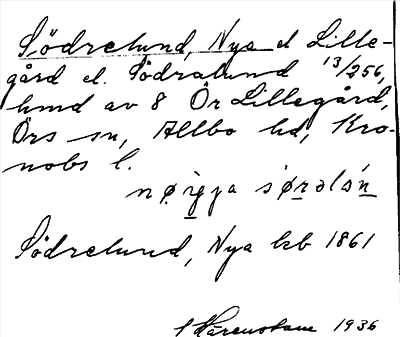 Södrelund, Nya el Lille-
gård el. Södralund 13/256,
hmd av 8 Ör Lillegård,
Örs sn, Allbo hd, Kro-
nobs l.
nø̱i̱gja sø̱rəlǿn̲
Södrelund, Nya kb 1861
Härenstam 1936